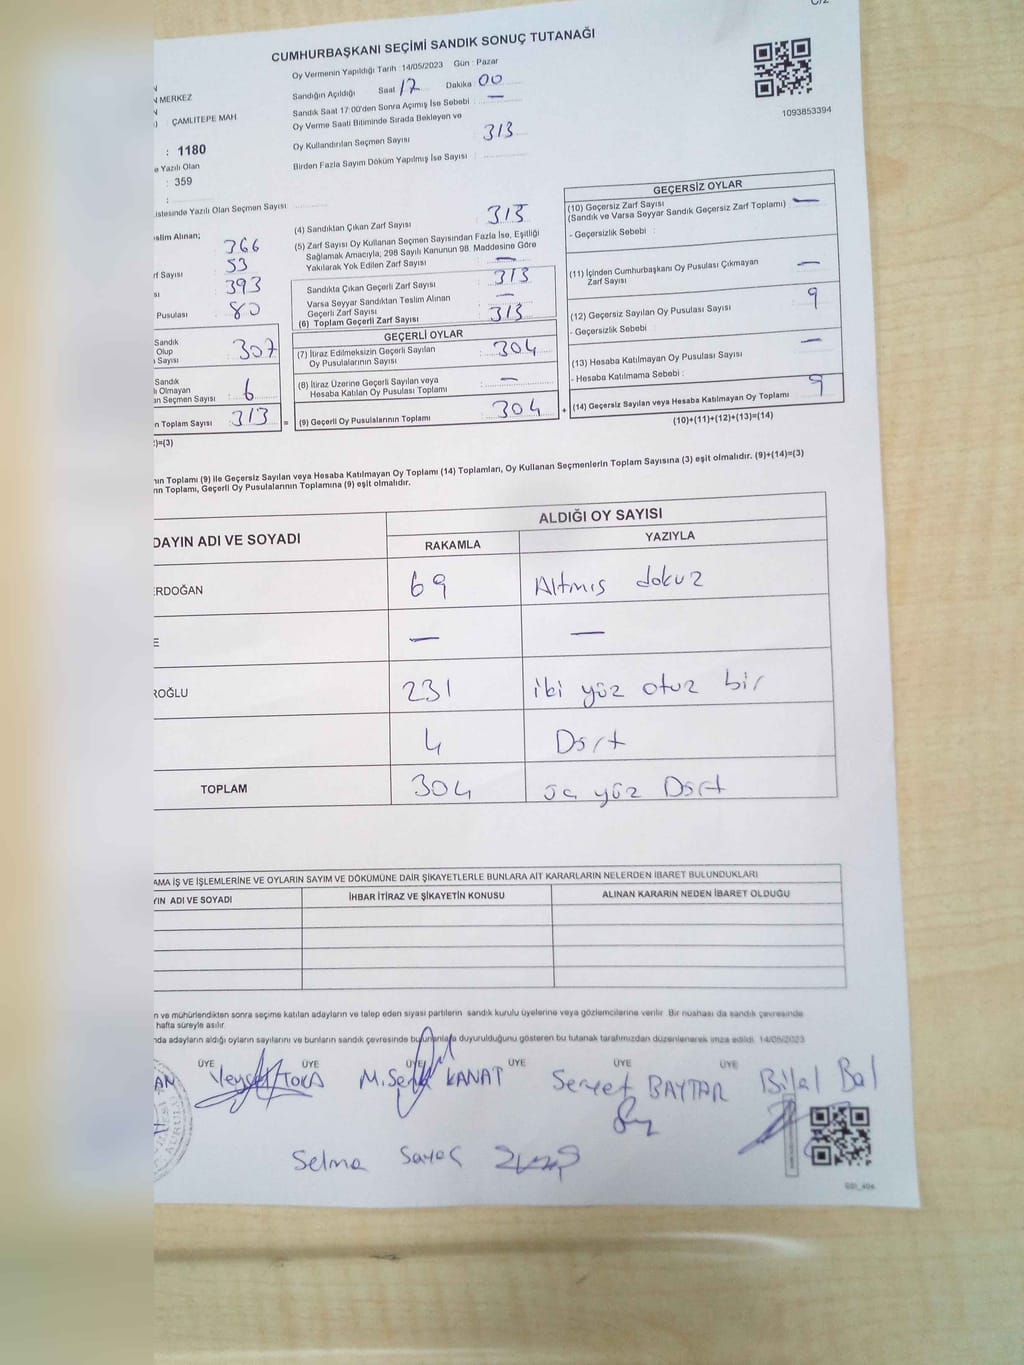 C/2
CUMHURBAŞKANI SEÇİMİ SANDIK SONUÇ TUTANAĞI
Oy Vermenin Yapıldığı Tarih : 14/05/2023 Gün : Pazar
Sandığın Açıldığı Saat 17 Dakika 00
Sandık Saat 17:00'den Sonra Açımış İse Sebebi : —
Oy Verme Saati Bitiminde Sırada Bekleyen ve
Oy Kullandırılan Seçmen Sayısı 313
Birden Fazla Sayım Döküm Yapılmış İse Sayısı :
1093853394
N MERKEZ
: ÇAMLITEPE MAH.
: 1180
e Yazılı Olan
: 359
:
istesinde Yazılı Olan Seçmen Sayısı
slim Alınan;
366
rf Sayısı 53
sı 393
Pusulası 80
Sandık
Olup
Sayısı : 307
Sandık
lı Olmayan
an Seçmen Sayısı : 6
n Toplam Sayısı : 313 =
)=(3)
(4) Sandıktan Çıkan Zarf Sayısı 313
(5) Zarf Sayısı Oy Kullanan Seçmen Sayısından Fazla İse, Eşitliği
Sağlamak Amacıyla, 298 Sayılı Kanunun 98. Maddesine Göre
Yakılarak Yok Edilen Zarf Sayısı —
Sandıkta Çıkan Geçerli Zarf Sayısı 313
Varsa Seyyar Sandıktan Teslim Alınan
Geçerli Zarf Sayısı —
(6) Toplam Geçerli Zarf Sayısı 313
GEÇERLİ OYLAR
(7) İtiraz Edilmeksizin Geçerli Sayılan
Oy Pusulalarının Sayısı : 304
(8) İtiraz Üzerine Geçerli Sayılan veya
Hesaba Katılan Oy Pusulası Toplamı : —
(9) Geçerli Oy Pusulalarının Toplamı : 304 +
GEÇERSİZ OYLAR
(10) Geçersiz Zarf Sayısı
(Sandık ve Varsa Seyyar Sandık Geçersiz Zarf Toplamı) —
- Geçersizlik Sebebi :
(11) İçinden Cumhurbaşkanı Oy Pusulası Çıkmayan
Zarf Sayısı —
(12) Geçersiz Sayılan Oy Pusulası Sayısı 9
- Geçersizlik Sebebi :
(13) Hesaba Katılmayan Oy Pusulası Sayısı —
- Hesaba Katılmama Sebebi :
(14) Geçersiz Sayılan veya Hesaba Katılmayan Oy Toplamı 9
(10)+(11)+(12)+(13)=(14)
nın Toplamı (9) ile Geçersiz Sayılan veya Hesaba Katılmayan Oy Toplamı (14) Toplamları, Oy Kullanan Seçmenlerin Toplam Sayısına (3) eşit olmalıdır. (9)+(14)=(3)
nn Toplamı, Geçerli Oy Pusulalarının Toplamına (9) eşit olmalıdır.
DAYIN ADI VE SOYADI
ALDIĞI OY SAYISI
RAKAMLA YAZIYLA
ERDOĞAN 69 Altmış dokuz
E — —
ROĞLU 231 iki yüz otuz bir
4 Dört
TOPLAM 304 üç yüz Dört
AMA İŞ VE İŞLEMLERİNE VE OYLARIN SAYIM VE DÖKÜMÜNE DAİR ŞİKAYETLERLE BUNLARA AİT KARARLARIN NELERDEN İBARET BULUNDUKLARI
YIN ADI VE SOYADI İHBAR İTİRAZ VE ŞİKAYETİN KONUSU ALINAN KARARIN NEDEN İBARET OLDUĞU
n ve mühürlendikten sonra seçime katılan adayların ve talep eden siyasi partilerin sandık kurulu üyelerine veya gözlemcilerine verilir. Bir nüshası da sandık çevresinde
hafta süreyle asılır.
nda adayların aldığı oyların sayılarını ve bunların sandık çevresinde bu tutanakla duyurulduğunu gösteren bu tutanak tarafımızdan düzenlenerek imza edildi. 14/05/2023
ÜYE ÜYE ÜYE ÜYE ÜYE ÜYE
Veysel TOKA M.Serif KANAT Servet BAYTAR Bilal Bal
Selma